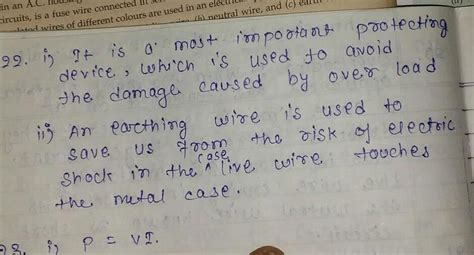 in an A.C. housing
circuits, is a fuse wire connected in
wires of different colours are used in an electrical
(b) neutral wire, and (c) earth
22. i) It is a most important protecting
device, which is used to avoid
the damage caused by over load
ii) An earthing wire is used to
save us from the risk of electric
shock in the case live wire touches
the metal case.
23. i) P = VI.